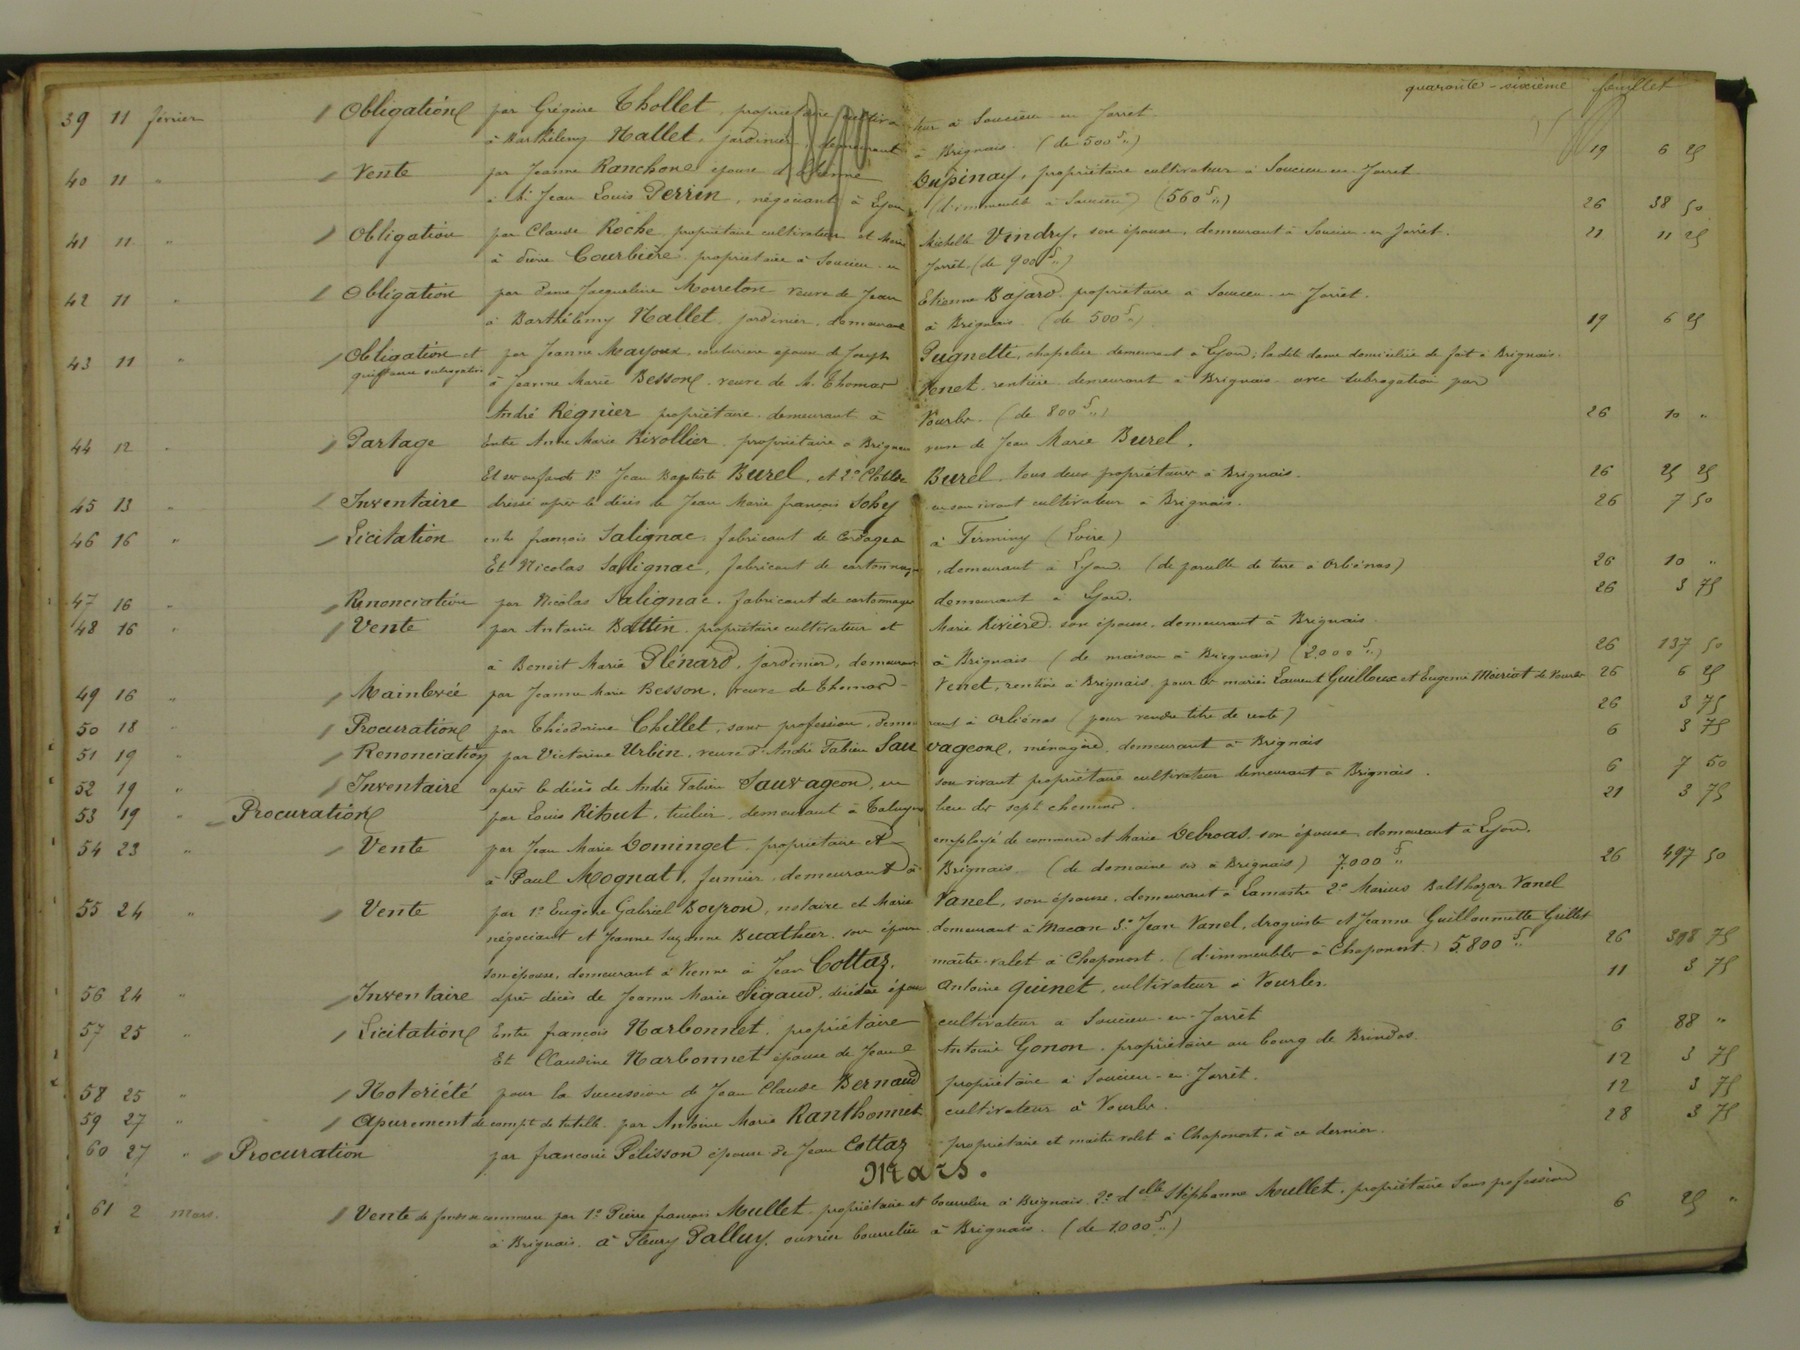 quarante-sixième feuillet
39 11 février Obligation par Grégoire Thollet, propriétaire cultivateur à Soucieu-en-Jarret
à Barthélemy Nallet, jardinier, demeurant à Brignais (de 500f") 19 6 25
40 11 " Vente par Jeanne Ranchon épouse d'Etienne Dupinay, propriétaire cultivateur à Soucieu-en-Jarret
à Mr Jean Louis Perrin, négociant à Lyon (d'immeuble à Soucieu) (560f") 26 38 50
41 11 " Obligation par Claude Roche propriétaire cultivateur et Marie Michelle Vindry, son épouse, demeurant à Soucieu-en-Jarrêt. 21 11 25
à Courbière propriétaire à Soucieu-en Jarrêt (de 900f")
42 11 " Obligation par Dame Jacqueline Mourelon veuve de Jean Etienne Bajard propriétaire à Soucieu-en Jarrêt.
à Barthélemy Nallet, jardinier, demeurant à Brignais (de 500f") 19 6 25
43 11 " Obligation et par Jeanne Mayoux, couturière épouse de Joseph Pugnette, chapelier demeurant à Lyon; la dite dame domiciliée de fait à Brignais.
quittance subrogative à Jeanne Marie Besson, veuve de M. Thomas Venet, rentière demeurant à Brignais avec subrogation par
André Régnier propriétaire demeurant à Vourles (de 800f") 26 10 "
44 12 " Partage Entre Anne Marie Rivollier, propriétaire à Brignais veuve de Jean Marie Burel,
Et ses enfants 1° Jean Baptiste Burel, et 2° Clotilde Burel, tous deux propriétaires à Brignais. 26 25 25
45 13 " Inventaire dressé après le décès de Jean Marie françois Sohy en son vivant cultivateur à Brignais. 26 7 50
46 16 " Licitation entre françois Salignac, fabricant de Cordages à Firminy (Loire)
Et Nicolas Salignac, fabricant de cartonnages, demeurant à Lyon (de parcelle de terre à Orliénas) 26 10 "
47 16 " Renonciation par Nicolas Salignac, fabricant de cartonnages demeurant à Lyon. 26 3 75
48 16 " Vente par Antoine Battin propriétaire cultivateur et Marie Rivière son épouse, demeurant à Brignais
à Benoit Marie Plénard, jardinier, demeurant à Brignais (de maison à Brignais) (2.000f") 26 137 50
49 16 " Mainlevée par Jeanne Marie Besson, veuve de Thomas Venet, rentière à Brignais pour les mariés Laurent Guilloux et Eugenie Moiriat de Vourles 26 6 25
50 18 " Procuration par Théodorine Chillet, sans profession, demeurant à Orliénas (pour vendre titre de rente) 26 3 75
51 19 " Renonciation par Victorine Urbin, veuve d'André Fabien Sauvageon, ménagère, demeurant à Brignais 6 3 75
52 19 " Inventaire après le décès de André Fabien Sauvageon, en son vivant propriétaire cultivateur demeurant à Brignais. 6 7 50
53 19 " Procuration par Louis Ritout, tuilier, demeurant à Taluyers lieu des sept chemins 21 3 75
54 23 " Vente par Jean Marie Dominget propriétaire et employé de commerce et Marie Debroas, son épouse demeurant à Lyon.
à Paul Mognat, fermier, demeurant à Brignais (de domaine sis à Brignais) 7.000f" 26 497 50
55 24 " Vente par 1° Eugène Gabriel Boyron, notaire et Marie Vanel, son épouse, demeurant à Lamastre 2° Marius Balthazar Vanel
négociant et Jeanne Suzanne Buathier son épouse demeurant à Macon 3° Jean Vanel, droguiste et Jeanne Guillaumette Gillet
son épouse, demeurant à Vienne à Jean Cottaz, maître-valet à Chaponost (d'immeubles à Chaponost) 5.800f" 26 398 75
56 24 " Inventaire après décès de Jeanne Marie Sigaud, décédée épouse Antoine Guinet, cultivateur à Vourles. 11 3 75
57 25 " Licitation Entre françois Narbonnet, propriétaire cultivateur à Soucieu-en-Jarrêt
Et Claudine Narbonnet épouse de Jean Antoine Gonon, propriétaire au bourg de Brindas. 6 88 "
58 25 " Notoriété pour la succession de Jean Claude Bernaud propriétaire à Soucieu-en-Jarrêt. 12 3 75
59 27 " Apurement de compte de tutelle par Antoine Marie Ranthonnet cultivateur à Vourles. 12 3 75
60 27 " Procuration par françoise Pélisson épouse de Jean Cottaz propriétaire et maître valet à Chaponost, à ce dernier. 28 3 75
Mars.
61 2 Mars. Vente de fonds de commerce par 1° Pierre françois Mullet propriétaire et bourrelier à Brignais 2° delle Stéphanne Mullet, propriétaire sans profession
à Brignais. à Fleury Palluy, ouvrier bourrelier à Brignais (de 1.000f") 6 25 "